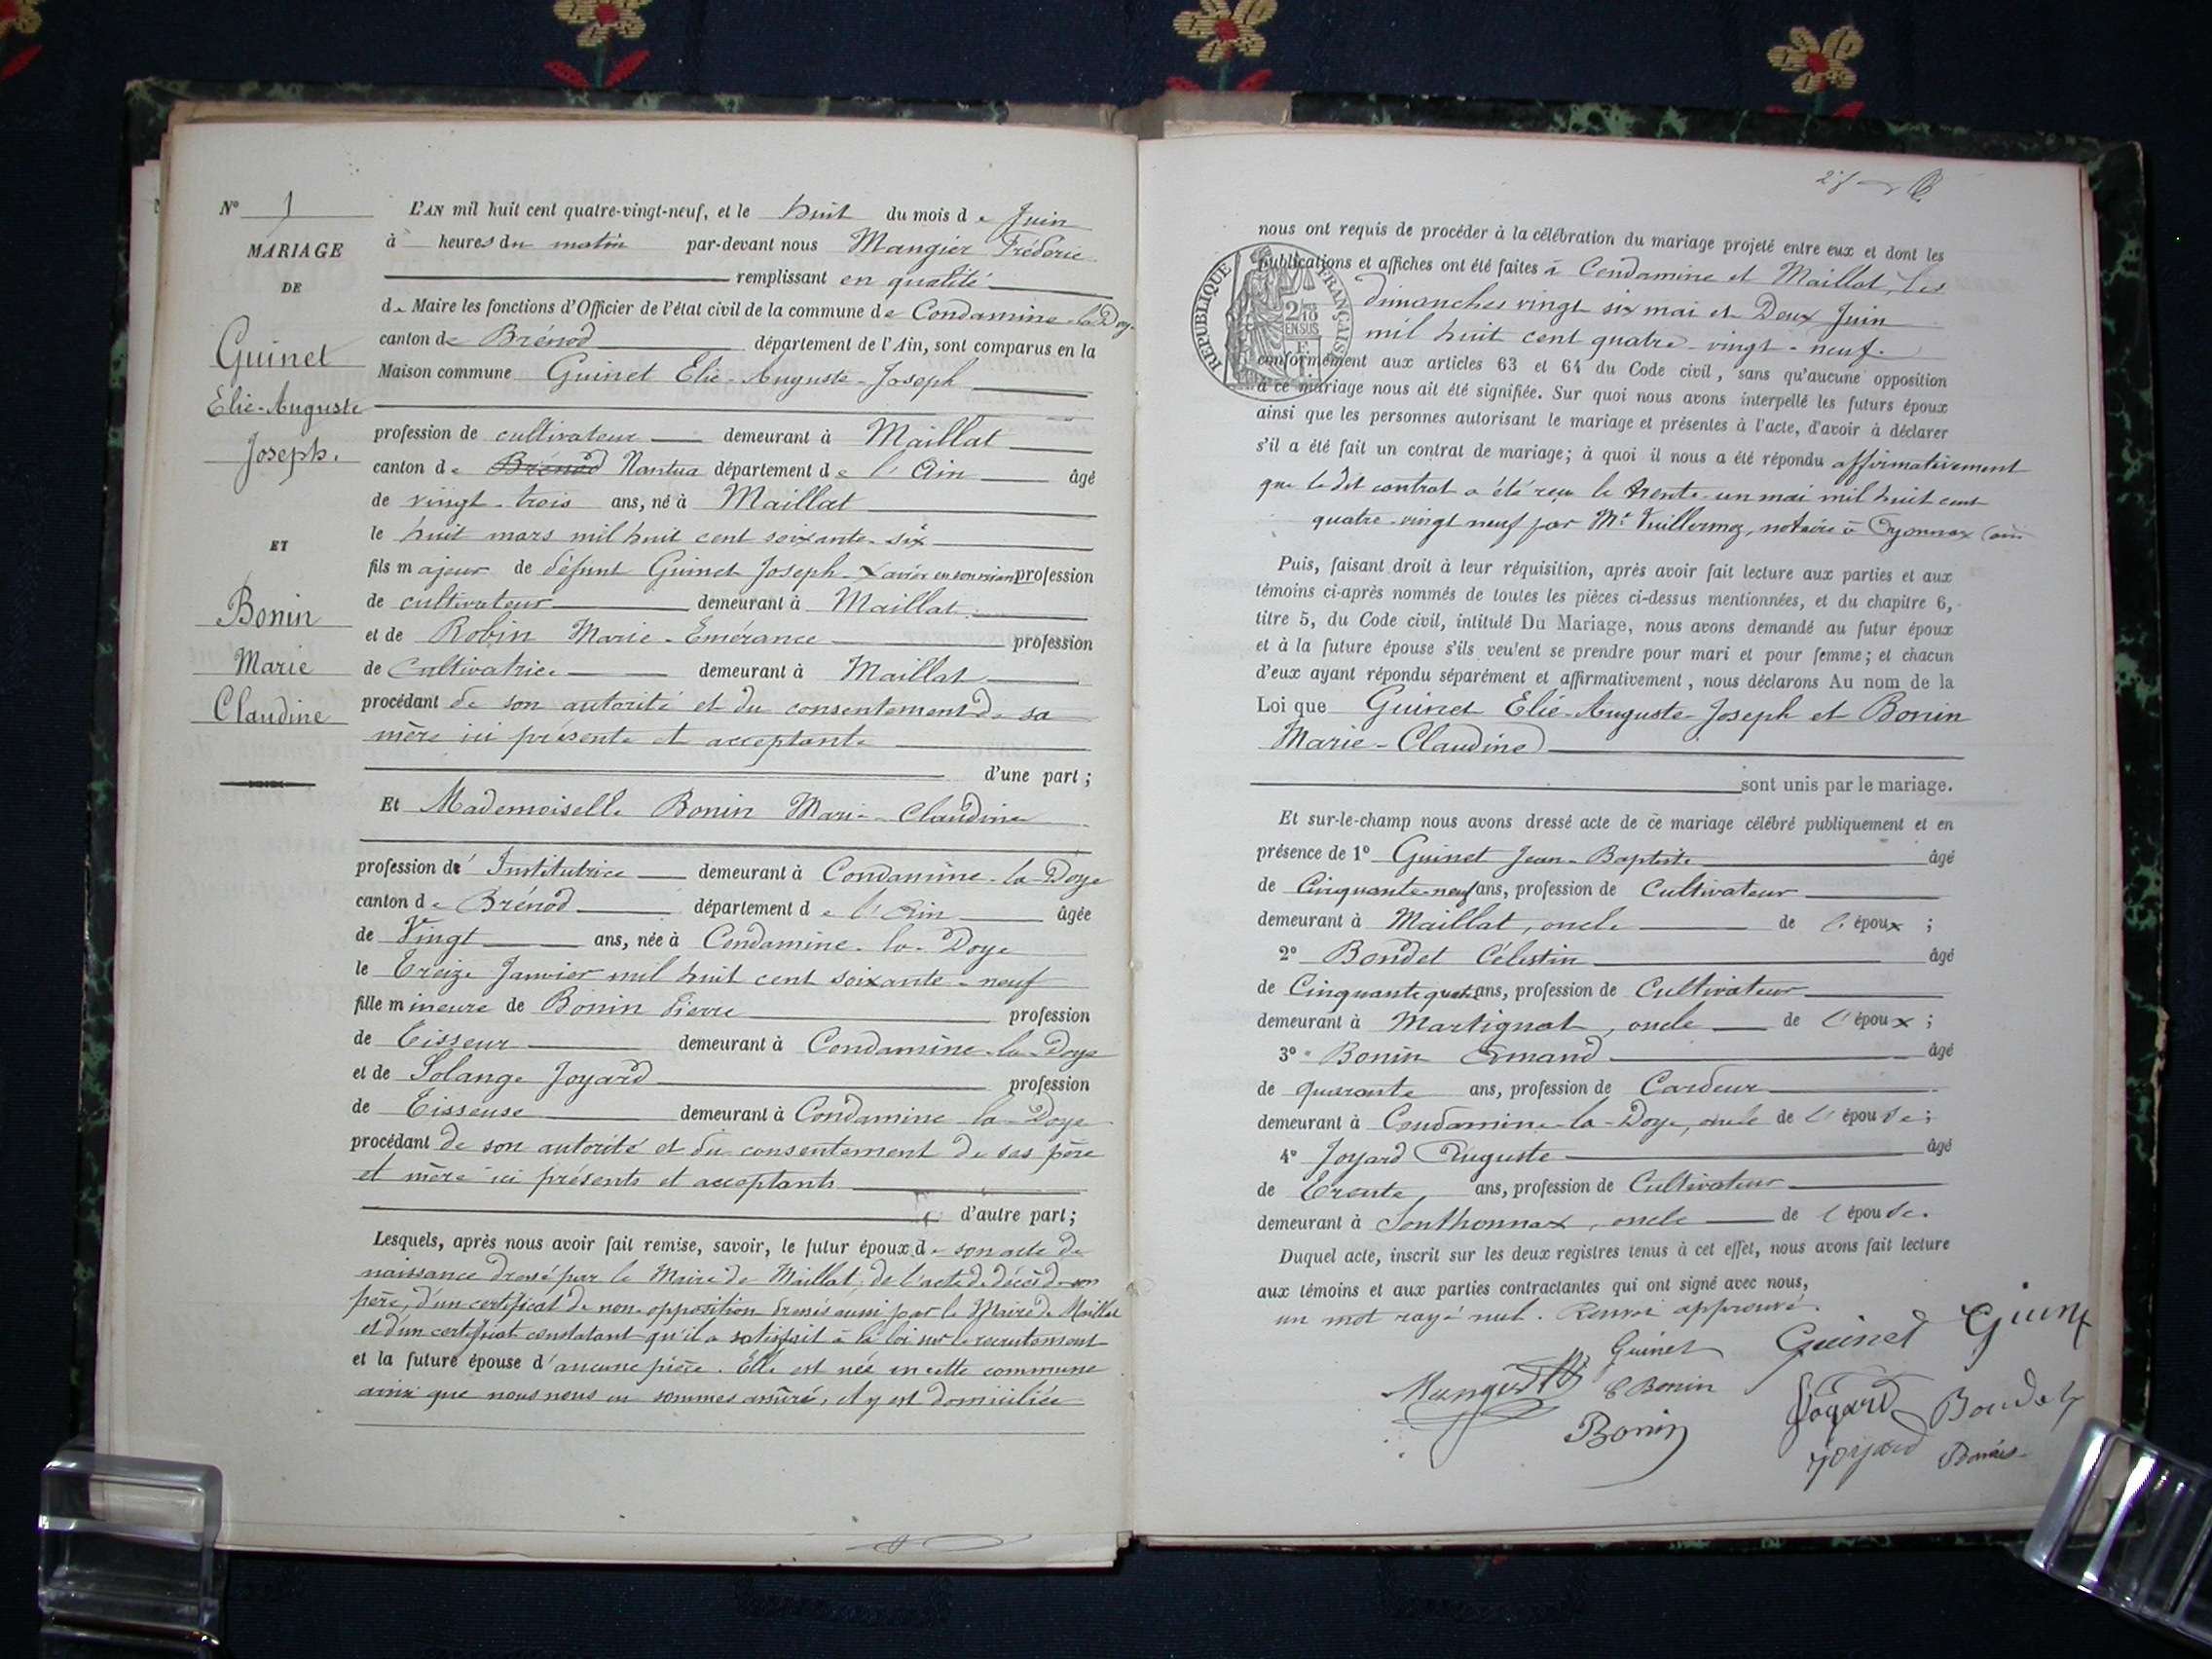 N° 1
MARIAGE
DE
Guinet
Elie-Auguste
Joseph.
ET
Bonin
Marie
Claudine
L'AN mil huit cent quatre-vingt-neuf, et le huit du mois de Juin
à heures du matin par-devant nous Mangier Fréderic
remplissant en qualité
de Maire les fonctions d'Officier de l'état civil de la commune de Condamine-la-Doye
canton de Brénod département de l'Ain, sont comparus en la
Maison commune Guinet Elie-Auguste-Joseph
profession de cultivateur demeurant à Maillat
canton de Brénod Nantua département de l'Ain âgé
de vingt-trois ans, né à Maillat
le huit mars mil huit cent soixante-six
fils majeur de défunt Guinet Joseph-Xavier en son vivant profession
de cultivateur demeurant à Maillat
et de Robin Marie-Emérance profession
de Cultivatrice demeurant à Maillat
procédant de son autorité et du consentement de sa
mère ici présente et acceptante
d'une part;
Et Mademoiselle Bonin Marie-Claudine
profession d' Institutrice demeurant à Condamine-la-Doye
canton de Brénod département de l'Ain âgée
de Vingt ans, née à Condamine-la-Doye
le Treize Janvier mil huit cent soixante-neuf
fille mineure de Bonin Pierre profession
de Tisseur demeurant à Condamine-la-Doye
et de Solange Joyard profession
de Tisseuse demeurant à Condamine-la-Doye
procédant de son autorité et du consentement de ses père
et mère ici présents et acceptants
d'autre part;
Lesquels, après nous avoir fait remise, savoir, le futur époux, de son acte de
naissance dressé par le Maire de Maillat, de l'acte de décès de son
père, d'un certificat de non-opposition dressé aussi par le Maire de Maillat
et d'un certificat constatant qu'il a satisfait à la loi sur le recrutement
et la future épouse d'aucune pièce. Elle est née en cette commune
ainsi que nous nous en sommes assuré, et y est domiciliée
nous ont requis de procéder à la célébration du mariage projeté entre eux et dont les
publications et affiches ont été faites à Condamine et Maillat, les
dimanches vingt six mai et Deux Juin
mil huit cent quatre-vingt-neuf.
REPUBLIQUE FRANÇAISE
2/10
EN SUS
conformément aux articles 63 et 64 du Code civil, sans qu'aucune opposition
à ce mariage nous ait été signifiée. Sur quoi nous avons interpellé les futurs époux
ainsi que les personnes autorisant le mariage et présentes à l'acte, d'avoir à déclarer
s'il a été fait un contrat de mariage; à quoi il nous a été répondu affirmativement
que le dit contrat a été reçu le trente-un mai mil huit cent
quatre-vingt neuf par Me Vuillermoz, notaire à Oyonnax (Ain
Puis, faisant droit à leur réquisition, après avoir fait lecture aux parties et aux
témoins ci-après nommés de toutes les pièces ci-dessus mentionnées, et du chapitre 6,
titre 5, du Code civil, intitulé Du Mariage, nous avons demandé au futur époux
et à la future épouse s'ils veulent se prendre pour mari et pour femme; et chacun
d'eux ayant répondu séparément et affirmativement, nous déclarons Au nom de la
Loi que Guinet Elie-Auguste-Joseph et Bonin
Marie-Claudine
sont unis par le mariage.
Et sur-le-champ nous avons dressé acte de ce mariage célébré publiquement et en
présence de 1° Guinet Jean-Baptiste âgé
de Cinquante-neuf ans, profession de Cultivateur
demeurant à Maillat, oncle de l'époux;
2° Boudet Célestin âgé
de Cinquante quatre ans, profession de Cultivateur
demeurant à Martignat, oncle de l'époux;
3° Bonin Armand âgé
de quarante ans, profession de Cardeur
demeurant à Condamine-la-Doye, oncle de l'épouse;
4° Joyard Auguste âgé
de Trente ans, profession de Cultivateur
demeurant à Sonthonnax, oncle de l'épouse.
Duquel acte, inscrit sur les deux registres tenus à cet effet, nous avons fait lecture
aux témoins et aux parties contractantes qui ont signé avec nous,
un mot rayé nul. Renvoi approuvé.
Guinet Guinet Guinet
C Bonin Joyard Boudet
Bonin Joyard